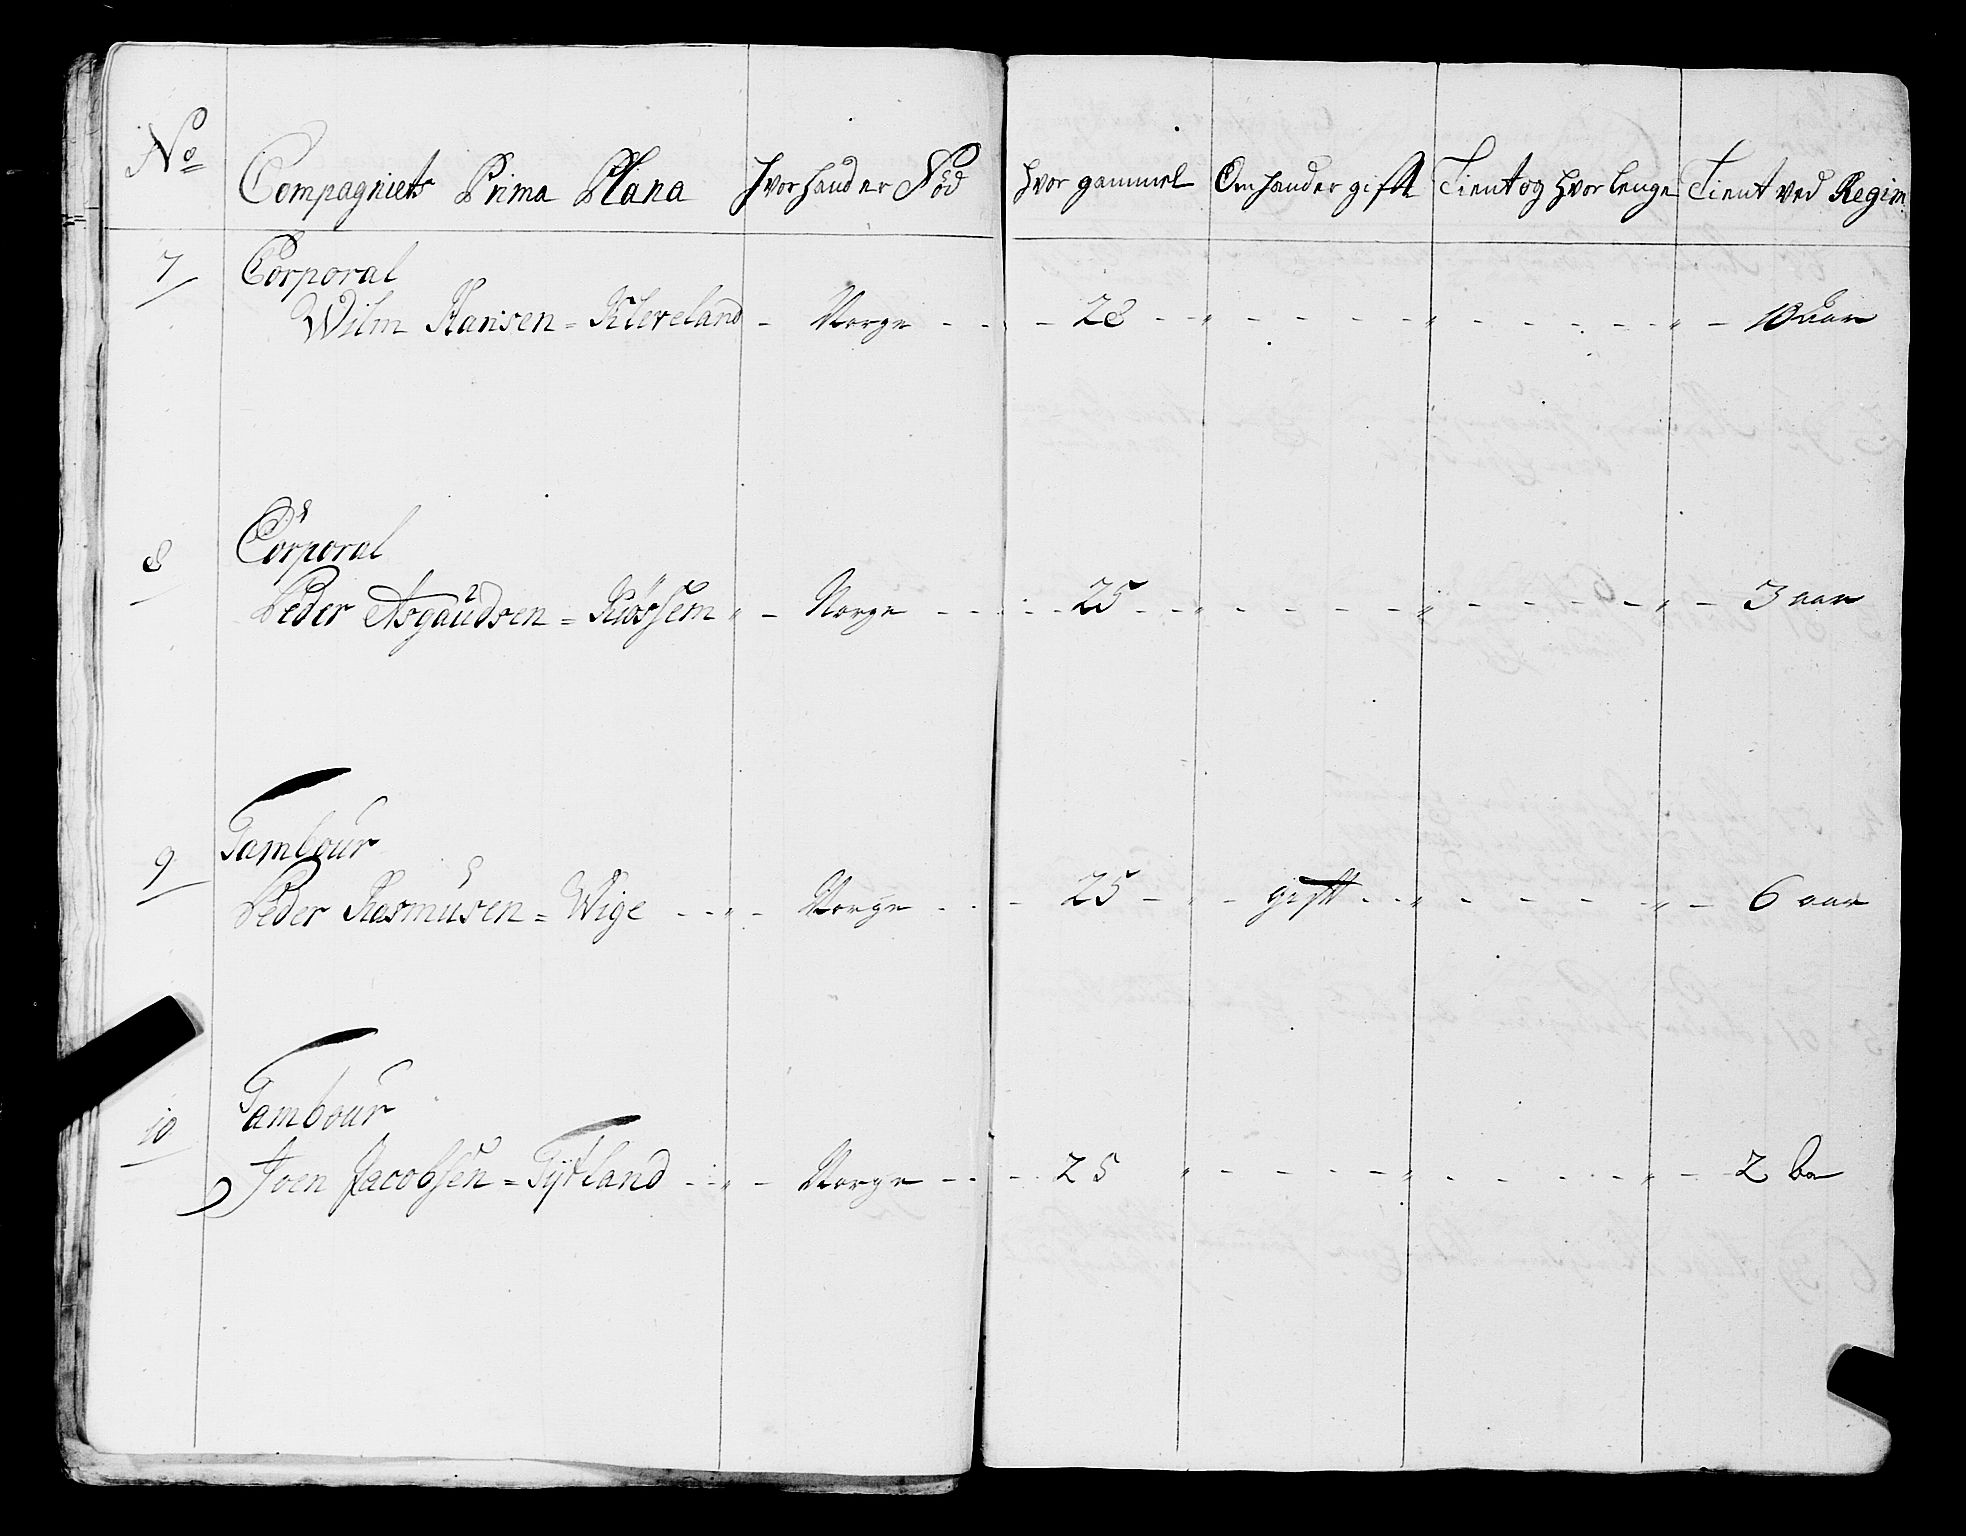 No Compagniets Prima Plana Hvor hand er Fød Hvor gammel Om hand er gift Tient og hvor lenge Tient ved Regim:
7 Corporal
Wilm Hansen = Kleveland - Norge - 28 - " - " - "
8 Corporal
Peder Asgaudsen = - Norge - 25 - " - " - " - 3 aar
9 Tambour
Peder Rasmusen = Wige - " - Norge - 25 - " - gift - " - " - 6 aar
10 Tambour
Joen Jacobsen = Tÿtland - " - Norge - 25 " - " - " - 2 do